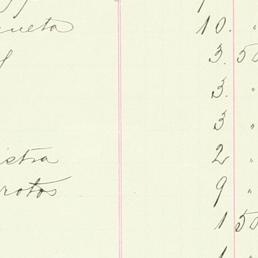 ueta 10. "
3. 50
3. "
3 "
istra 2 "
rotos 9 "
1 50
1 "